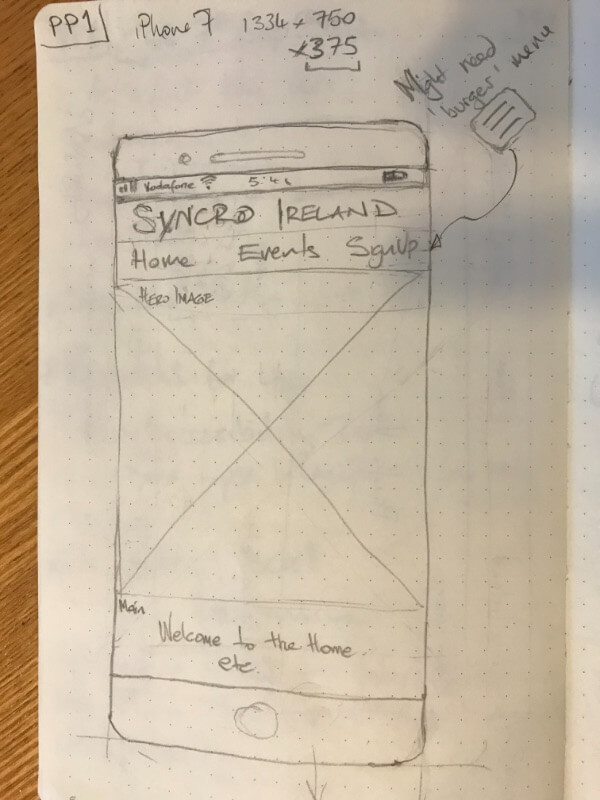 PP1 iPhone 7 1334 x 750
x375
Might need
'burger' menu
Vodafone
SYNCRO IRELAND
Home Events SignUp
HERO IMAGE
Main
Welcome to the Home
etc.